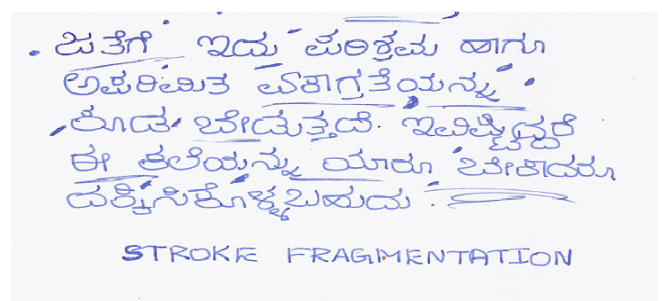 ಜತೆಗೆ ಇದು ಪರಿಶ್ರಮ ಹಾಗೂ
ಅಪರಿಮಿತ ಏಕಾಗ್ರತೆಯನ್ನು
ಕೂಡ ಬೇಡುತ್ತದೆ. ಇವಿಷ್ಟಿದ್ದರೆ
ಈ ಕಲೆಯನ್ನು ಯಾರೂ ಬೇಕಾದರೂ
ದಕ್ಕಿಸಿಕೊಳ್ಳಬಹುದು.
STROKE FRAGMENTATION